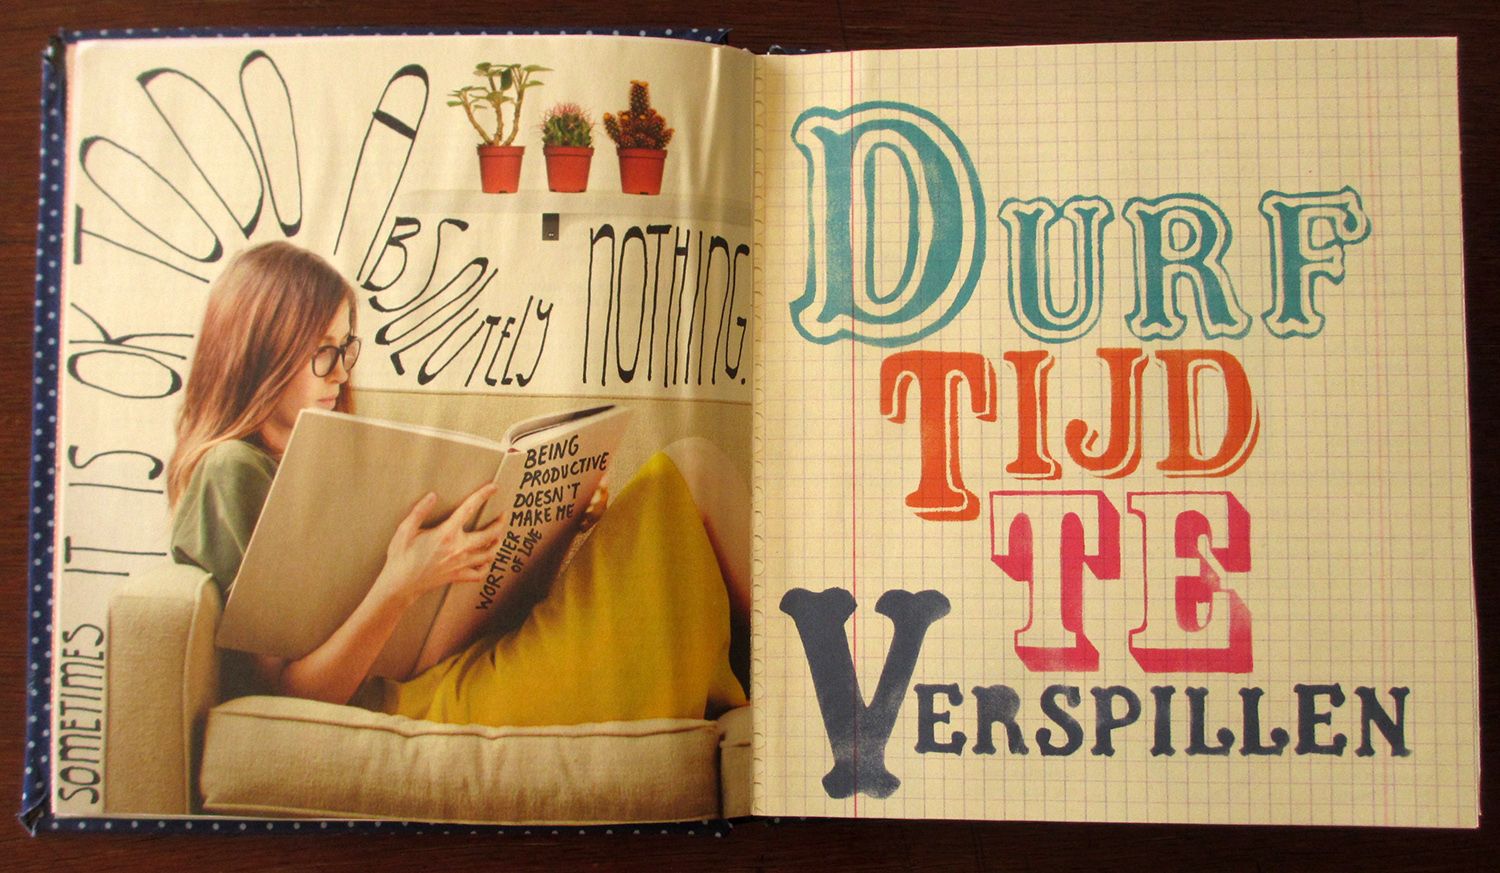 SOMETIMES IT IS OK TO DO ABSOLUTELY NOTHING.
BEING
PRODUCTIVE
DOESN'T
MAKE ME
WORTHIER
OF LOVE
DURF
TIJD
TE
VERSPILLEN